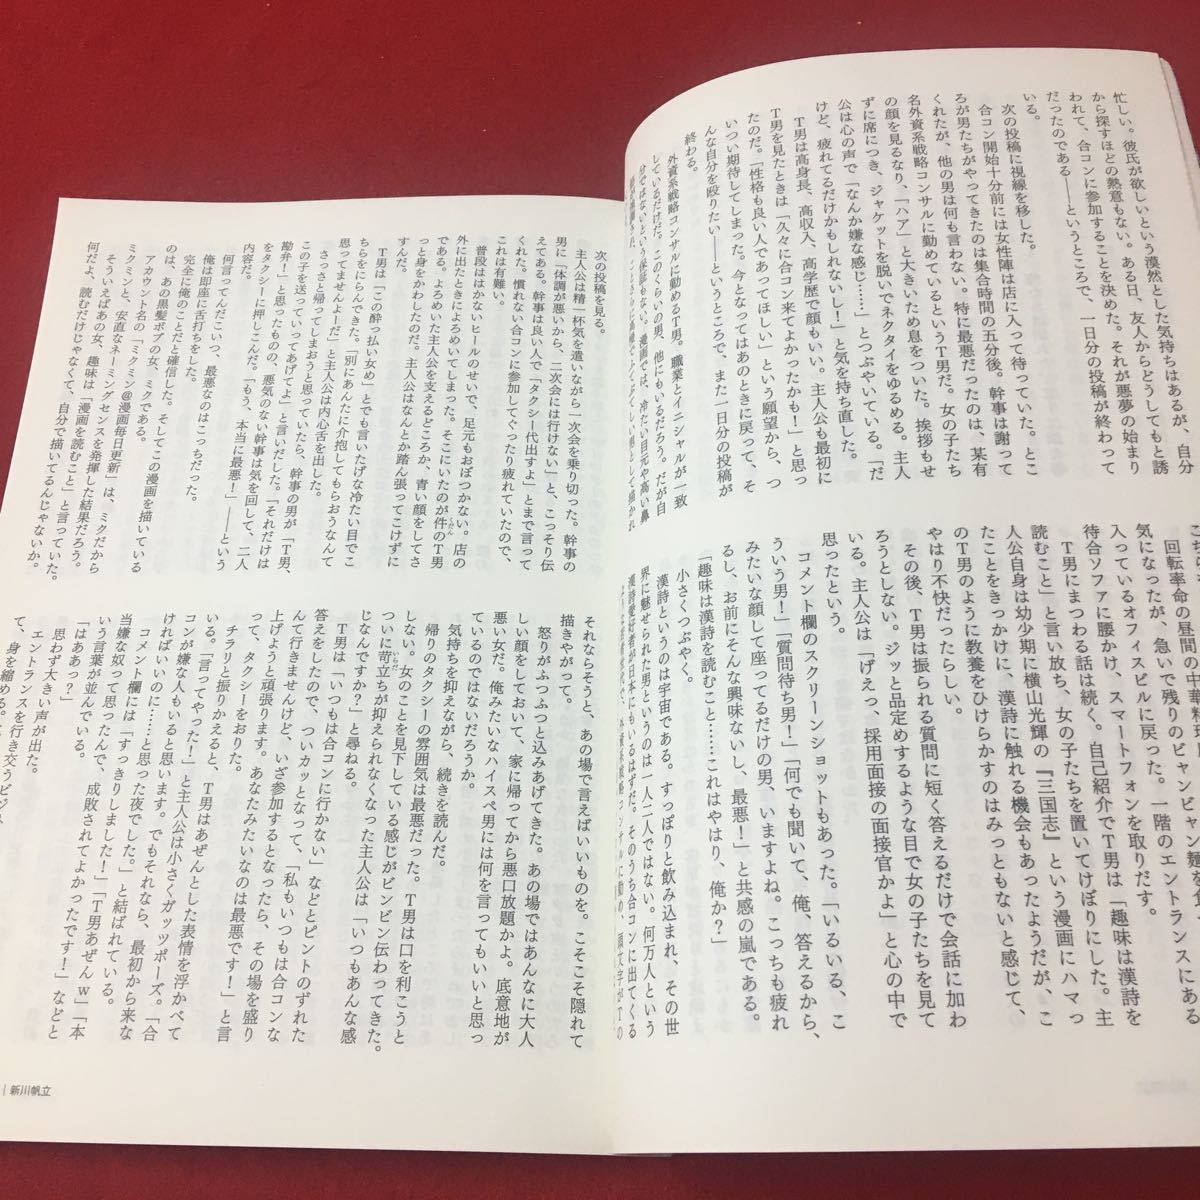 忙しい。彼氏が欲しいという漠然とした気持ちはあるが、自分
から探すほどの熱意もない。ある日、友人からどうしてもと誘
われて、合コンに参加することを決めた。それが悪夢の始まり
だったのである――というところで、一日分の投稿が終わって
いる。
次の投稿に視線を移した。
合コン開始十分前には女性陣は店に入って待っていた。とこ
ろが男たちがやってきたのは集合時間の五分後。幹事は謝って
くれたが、他の男は何も言わない。特に最悪だったのは、某有
名外資系戦略コンサルに勤めているというT男だ。女の子たち
の顔を見るなり、「ハア」と大きいため息をついた。挨拶もせ
ずに席につき、ジャケットを脱いでネクタイをゆるめる。主人
公は心の声で「なんか嫌な感じ……」とつぶやいている。「だ
けど、疲れてるだけかもしれないし!」と気を持ち直した。
T男は高身長、高収入、高学歴で顔もいい。主人公も最初に
T男を見たときは「久々に合コン来てよかったかも!」と思っ
たのだ。「性格も良い人であってほしい」という願望から、つ
いつい期待してしまった。今となってはあのときに戻って、そ
んな自分を殴りたい――というところで、また一日分の投稿が
終わる。
外資系戦略コンサルに勤めるT男。職業とイニシャルが一致
しているだけだ。このくらいの男、他にもいるだろう。だが自
分ではないという保証もない。漫画では、冷たい目元や高い鼻
回転率命の昼間の中華料理
気になったが、急いで残りのビャンビャン麺を食
入っているオフィスビルに戻った。一階のエントランスにある
待合ソファに腰かけ、スマートフォンを取りだす。
T男にまつわる話は続く。自己紹介でT男は「趣味は漢詩を
読むこと」と言い放ち、女の子たちを置いてけぼりにした。主
人公自身は幼少期に横山光輝の『三国志』という漫画にハマっ
たことをきっかけに、漢詩に触れる機会もあったようだが、こ
のT男のように教養をひけらかすのはみっともないと感じて、
やはり不快だったらしい。
その後、T男は振られる質問に短く答えるだけで会話に加わ
ろうとしない。ジッと品定めするような目で女の子たちを見て
いる。主人公は「げえっ、採用面接の面接官かよ」と心の中で
思ったという。
コメント欄のスクリーンショットもあった。「いるいる、こ
ういう男!」「質問待ち男!」「何でも聞いて、俺、答えるから、
みたいな顔して座ってるだけの男、いますよね。こっちも疲れ
るし、お前にそんな興味ないし、最悪!」と共感の嵐である。
「趣味は漢詩を読むこと……これはやはり、俺か?」
小さくつぶやく。
漢詩というのは宇宙である。すっぽりと飲み込まれ、その世
界に魅せられた男というのは一人二人ではない。何万人という
漢詩愛好者が日本にもいるはずだ。そのうち合コンに出てくる
次の投稿を見る。
主人公は精一杯気を遣いながら一次会を乗り切った。幹事の
男に「体調が悪いから、二次会には行けない」と、こっそり伝
えてある。幹事は良い人で「タクシー代出すよ」とまで言って
くれた。慣れない合コンに参加してぐったり疲れていたので、
これは有難い。
普段はかないヒールのせいで、足元もおぼつかない。店の
外に出たときによろめいてしまった。そこにいたのが件のT男
である。よろめいた主人公を支えるどころか、青い顔をしてさ
っと身をかわしたのだ。主人公はなんとか踏ん張ってこけずに
すんだ。
T男は「この酔っ払い女め」とでも言いたげな冷たい目でこ
ちらをにらんできた。「別にあんたに介抱してもらおうなんて
思ってませんよーだ」と主人公は内心舌を出した。
さっさと帰ってしまおうと思っていたら、幹事の男が「T男、
この子を送っていってあげてよ」と言いだした。「それだけは
勘弁!」と思ったものの、悪気のない幹事は気を回して、二人
をタクシーに押しこんだ。「もう、本当に最悪!」――という
内容だ。
何言ってんだこいつ、最悪なのはこっちだった。
俺は即座に舌打ちをした。
完全に俺のことだと確信した。そしてこの漫画を描いている
のは、あの黒髪ボブの女、ミクである。
アカウント名の「ミクミン@漫画毎日更新」は、ミクだから
ミクミンと、安直なネーミングセンスを発揮した結果だろう。
そういえばあの女、趣味は「漫画を読むこと」と言っていた。
何だよ、読むだけじゃなくて、自分で描いてるんじゃないか。
それならそうと、あの場で言えばいいものを。こそこそ隠れて
描きやがって。
怒りがふつふつと込みあげてきた。あの場ではあんなに大人
しい顔をしておいて、家に帰ってから悪口放題かよ。底意地が
悪い女だ。俺みたいなハイスペ男には何を言ってもいいと思っ
ているのではないだろうか。
気持ちを抑えながら、続きを読んだ。
帰りのタクシーの雰囲気は最悪だった。T男は口を利こうと
しない。女のことを見下している感じがビンビン伝わってきた。
ついに苛立ちが抑えられなくなった主人公は「いつもあんな感
じなんですか?」と尋ねる。
T男は「いつもは合コンに行かない」などとピントのずれた
答えをしたので、ついカッとなって、「私もいつもは合コンな
んて行きませんけど、いざ参加するとなったら、その場を盛り
上げようと頑張ります。あなたみたいなのは最悪です!」と言
って、タクシーをおりた。
チラリと振りかえると、T男はあぜんとした表情を浮かべて
いる。「言ってやった!」と主人公は小さくガッツポーズ。「合
コンが嫌な人もいると思います。でもそれなら、最初から来な
ければいいのに……と思った夜でした。」と結ばれている。
コメント欄には「すっきりしました!」「T男あぜんw」「本
当嫌な奴って思ってたんで、成敗されてよかったです!」などと
いう言葉が並んでいる。
「はああっ?」
思わず大きい声が出た。
エントランスを行き交うビジネ
て、身を縮める。
新川帆立